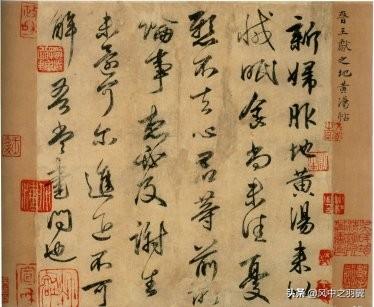 晉王獻之地黃湯帖
新婦服地黄湯来
減眠食尚未佳憂
懸不去心君等前所
論事想必及謝生
未還可尔進退不可
解吾當書問也
头条 @风中之羽翼